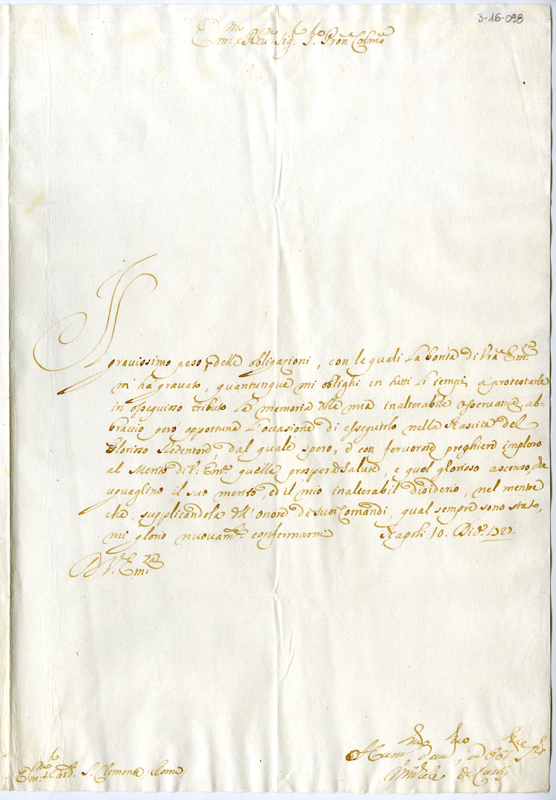 3-16-098
Em.mo e Rev. Sig. Sig. Pron Colmo
Il
gravissimo peso delle obligazioni, con le quali la bontà di Vra Em.za
m'ha gravato, quantunque mi oblighi in tutti li tempi a protestarle
in ossequioso tributo la memoria della mia inalterabile osservanza, ab-
braccio però opportuna l'occasione di esseguirlo nella Nascita del
Glorioso Redentore, dal quale spero, e con fervorose preghiere imploro
al Merito di V. Em.za quella prospera salute, e quel glorioso ascenso, che
uguaglino il suo merito, e il mio inalterabil desiderio, nel mentre
che supplicandola dell'onore de suoi Comandi, qual sempre sono stato,
mi glorio nuovam.te confermarmi Napoli 10. Dic.
D V. Em.za
Em.mo S. Card. S. Clemente Roma
Hum.mo Dev.mo ed Obl.